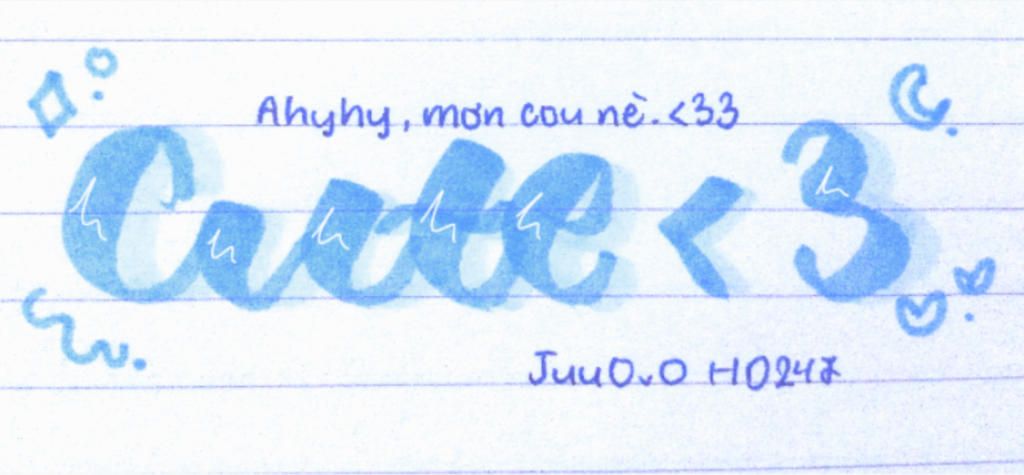 Ahyhy, mơn cou nè. <33
Cute <3
JuuO.O H0247